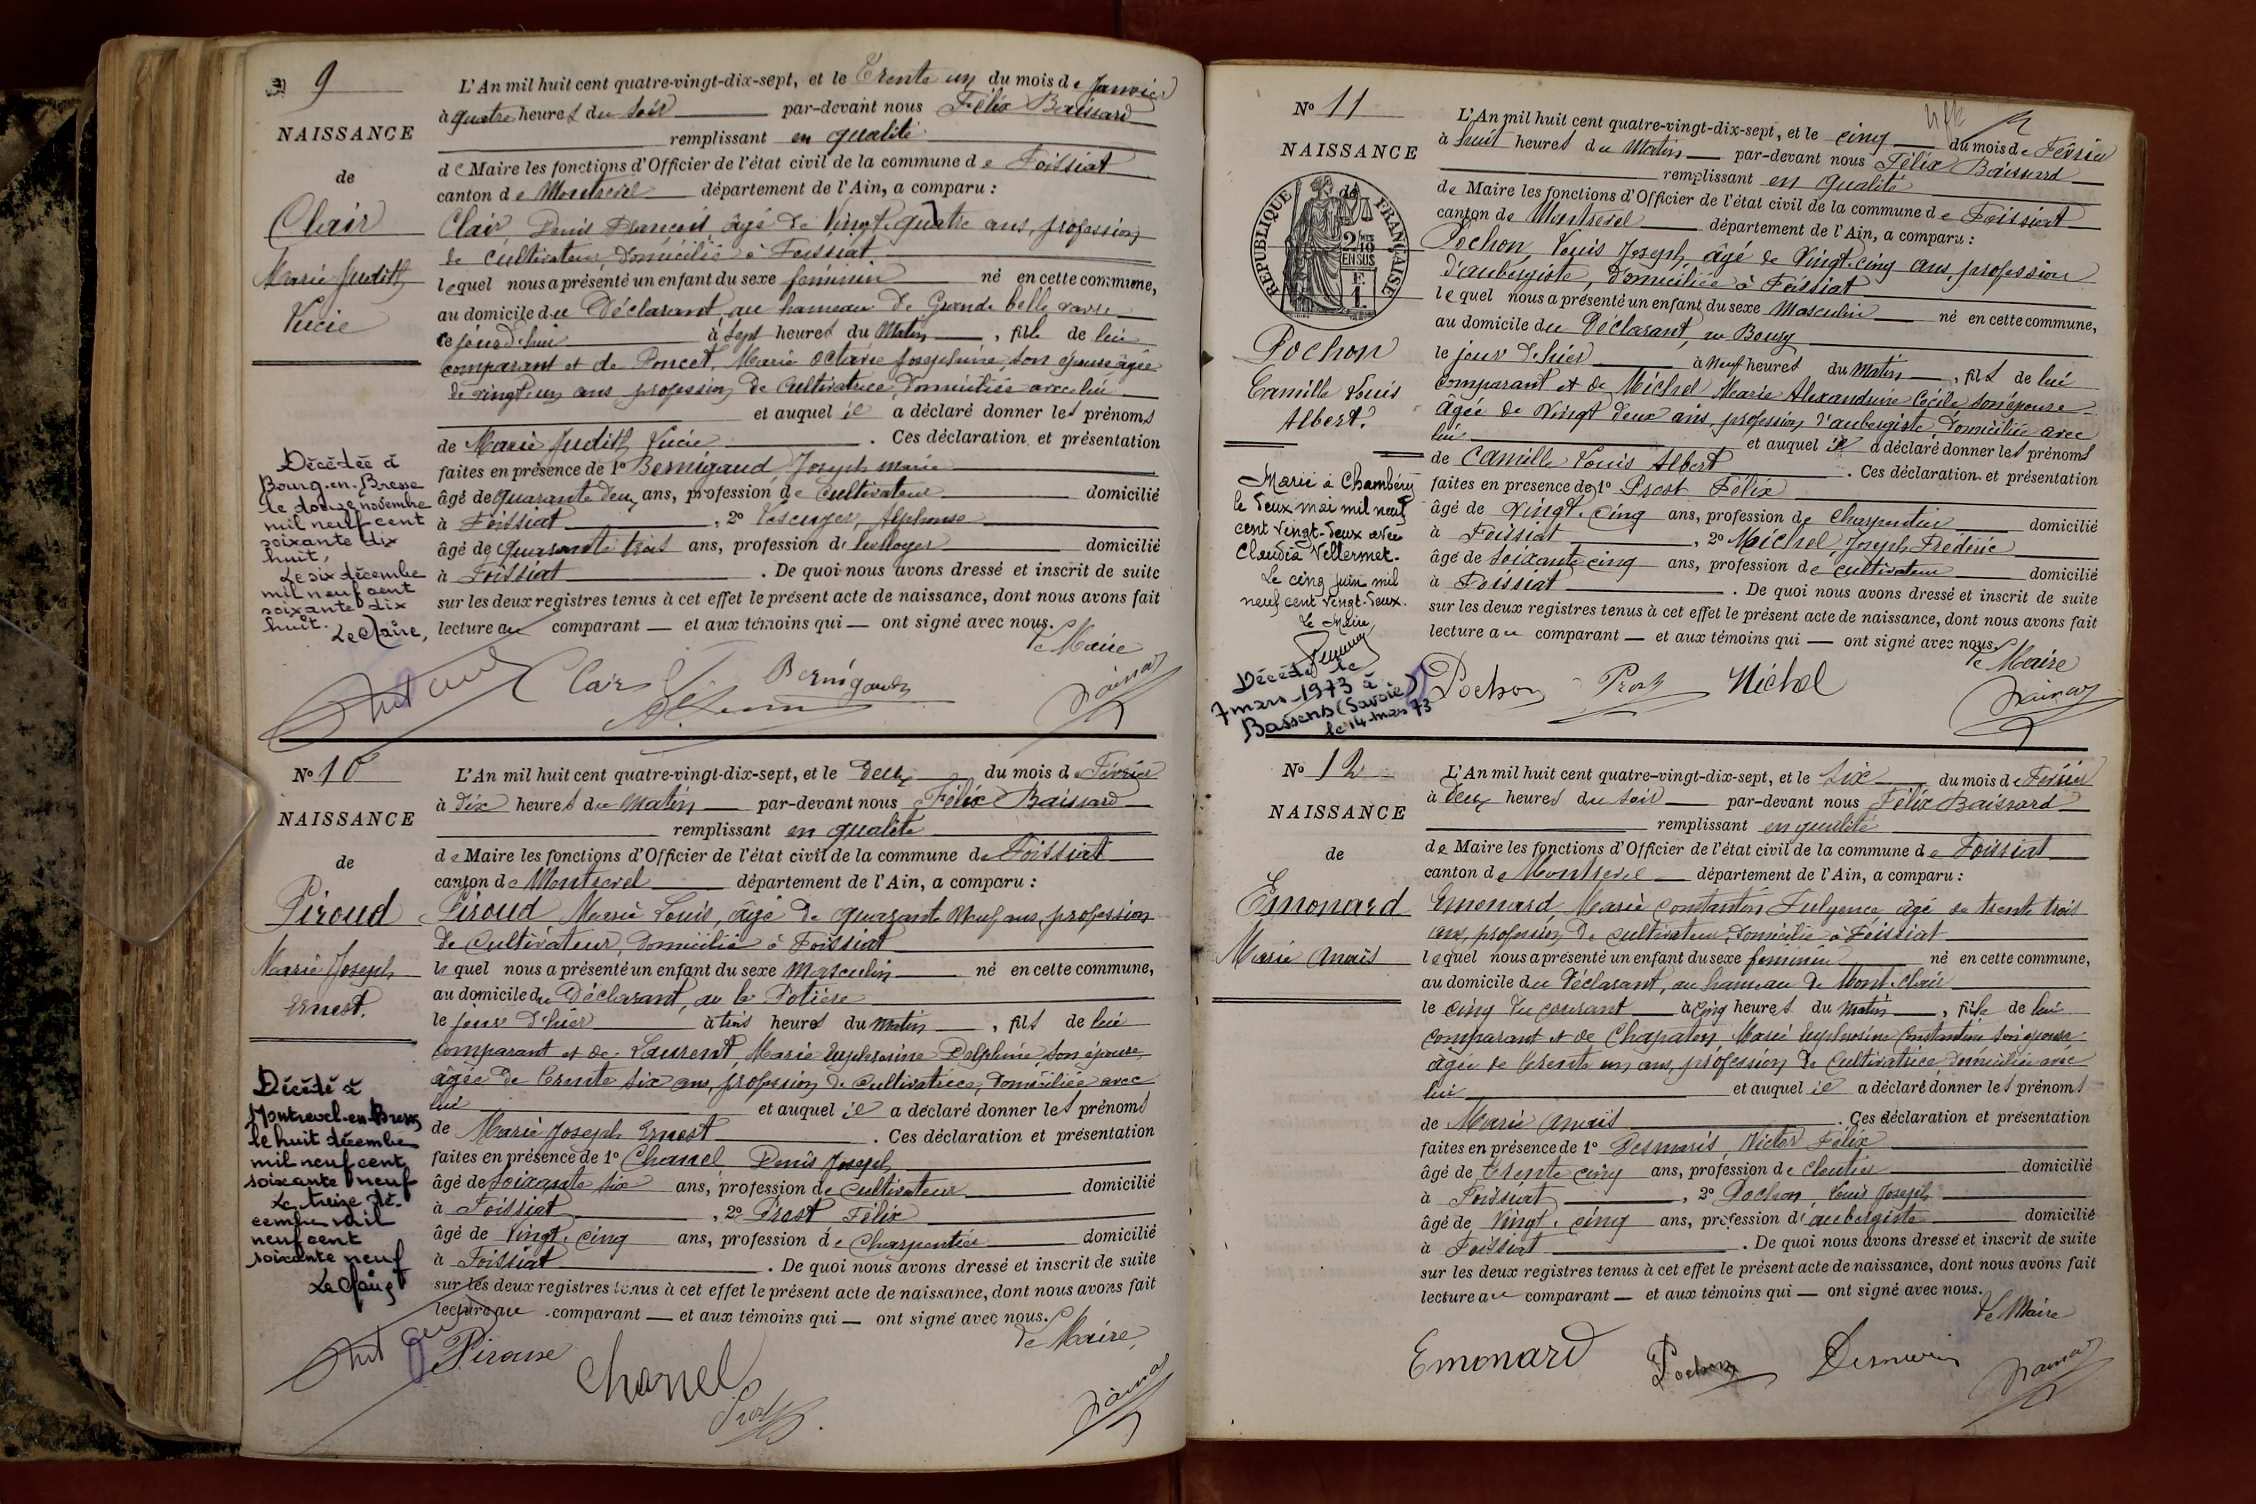 9
NAISSANCE
de
Clair
Marie Judith
Lucie
L'An mil huit cent quatre-vingt-dix-sept, et le Trente un du mois de Janvier
à quatre heures du soir par-devant nous Félix Baissard
remplissant en qualité
de Maire les fonctions d'Officier de l'état civil de la commune de Foissiat
canton de Montrevel département de l'Ain, a comparu :
Clair Denis François âgé de Vingt quatre ans, profession
de Cultivateur domicilié à Foissiat
lequel nous a présenté un enfant du sexe féminin né en cette commune,
au domicile du Déclarant, au hameau de Grande belle
ce jourd'hui à Sept heures du Matin, fille de lui
comparant et de Poncet, Marie Octavie Joséphine, son épouse âgée
de vingt un ans profession de Cultivatrice, domiciliée avec lui
et auquel il a déclaré donner les prénoms
de Marie Judith Lucie. Ces déclaration et présentation
faites en présence de 1° Bernigaud Joseph marie
âgé de quarante deux ans, profession de Cultivateur domicilié
à Foissiat, 2° Vescuyer, Alphonse
âgé de quarante trois ans, profession de domicilié
à Foissiat. De quoi nous avons dressé et inscrit de suite
sur les deux registres tenus à cet effet le présent acte de naissance, dont nous avons fait
lecture au comparant — et aux témoins qui — ont signé avec nous.
Le Maire
Décédée à
Bourg-en-Bresse
le douze novembre
mil neuf cent
soixante dix
huit.
Le six décembre
mil neuf cent
soixante dix
huit.
Le Maire,
Clair
Bernigaud
N° 10
NAISSANCE
de
Piroud
Marie Joseph
Ernest.
L'An mil huit cent quatre-vingt-dix-sept, et le Deux du mois de Février
à dix heures du Matin par-devant nous Félix Baissard
remplissant en qualité
de Maire les fonctions d'Officier de l'état civil de la commune de Foissiat
canton de Montrevel département de l'Ain, a comparu :
Piroud Marie Louis, âgé de quarante Neuf ans, profession
de Cultivateur, domicilié à Foissiat
lequel nous a présenté un enfant du sexe Masculin né en cette commune,
au domicile du Déclarant, au la Potière
le jour d'hier à trois heures du matin, fils de lui
comparant et de Laurent, Marie Euphrosine Delphine, son épouse,
âgée de Trente six ans, profession de Cultivatrice, domiciliée avec
lui et auquel il a déclaré donner les prénoms
de Marie Joseph Ernest. Ces déclaration et présentation
faites en présence de 1° Chanel Denis Joseph
âgé de soixante six ans, profession de Cultivateur domicilié
à Foissiat, 2° Prost Félix
âgé de Vingt-cinq ans, profession de Charpentier domicilié
à Foissiat. De quoi nous avons dressé et inscrit de suite
sur les deux registres tenus à cet effet le présent acte de naissance, dont nous avons fait
lecture au comparant — et aux témoins qui — ont signé avec nous.
Le Maire,
Décédé à
Montrevel-en-Bresse
le huit décembre
mil neuf cent
soixante neuf
Le treize dé-
cembre mil
neuf cent
soixante neuf
Le Maire
Chanel
Prost
N° 11
NAISSANCE
de
RÉPUBLIQUE FRANÇAISE
2/10
EN SUS
Pochon
Camille Louis
Albert.
L'An mil huit cent quatre-vingt-dix-sept, et le cinq du mois de Février
à huit heures du Matin par-devant nous Félix Baissard
remplissant en qualité
de Maire les fonctions d'Officier de l'état civil de la commune de Foissiat
canton de Montrevel département de l'Ain, a comparu :
Pochon, Louis Joseph, âgé de Vingt-cinq ans, profession
d'aubergiste, domicilié à Foissiat
lequel nous a présenté un enfant du sexe Masculin né en cette commune,
au domicile du Déclarant, au Bourg
le jour d'hier à Neuf heures du Matin, fils de lui
comparant et de Michel Marie Alexandrine Cécile son épouse
âgée de Vingt deux ans, profession d'aubergiste domiciliée avec
lui et auquel il a déclaré donner les prénoms
de Camille Louis Albert. Ces déclaration et présentation
faites en présence de 1° Prost Félix
âgé de vingt-cinq ans, profession de charpentier domicilié
à Foissiat, 2° Michel, Joseph Frédéric
âgé de soixante cinq ans, profession de cultivateur domicilié
à Foissiat. De quoi nous avons dressé et inscrit de suite
sur les deux registres tenus à cet effet le présent acte de naissance, dont nous avons fait
lecture au comparant — et aux témoins qui — ont signé avec nous.
Le Maire
Marié à Chambéry
le deux mai mil neuf
cent vingt-deux avec
Claudia Vellermet.
Le cinq juin mil
neuf cent vingt-deux.
Le Maire
Décédé le
7 mars 1973 à
Bassens (Savoie)
le 14 mars 73
Pochon Prost Michel
N° 12
NAISSANCE
de
Emonard
Marie Anaïs
L'An mil huit cent quatre-vingt-dix-sept, et le Six du mois de Février
à deux heures du soir par-devant nous Félix Baissard
remplissant en qualité
de Maire les fonctions d'Officier de l'état civil de la commune de Foissiat
canton de Montrevel département de l'Ain, a comparu :
Emonard Marie Constantin Fulgence âgé de trente trois
ans, profession de cultivateur, domicilié à Foissiat
lequel nous a présenté un enfant du sexe féminin né en cette commune,
au domicile du Déclarant, au hameau de Mont-clair
le cinq du courant à cinq heures du Matin, fille de lui
comparant et de Chapaton, Marie Euphrosine Constantine son épouse
âgée de Trente un ans, profession de Cultivatrice domiciliée avec
lui et auquel il a déclaré donner les prénoms
de Marie Anaïs. Ces déclaration et présentation
faites en présence de 1° Desmaris, Victor Félix
âgé de Trente cinq ans, profession de cloutier domicilié
à Foissiat, 2° Pochon Louis Joseph
âgé de Vingt-cinq ans, profession d'aubergiste domicilié
à Foissiat. De quoi nous avons dressé et inscrit de suite
sur les deux registres tenus à cet effet le présent acte de naissance, dont nous avons fait
lecture au comparant — et aux témoins qui — ont signé avec nous.
Le Maire
Emonard Pochon